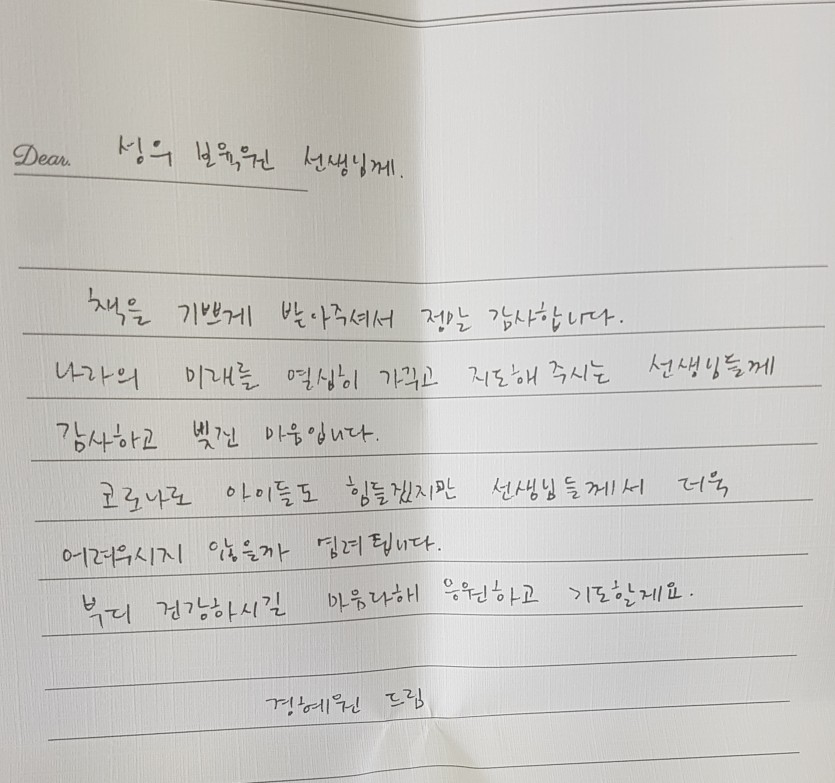 Dear. 성의 보육원 선생님께.
책을 기쁘게 받아주셔서 정말 감사합니다.
나라의 미래를 열심히 가꾸고 지도해 주시는 선생님들께
감사하고 빚진 마음입니다.
코로나로 아이들도 힘들겠지만 선생님들께서 더욱
어려우시지 않을까 염려됩니다.
부디 건강하시길 마음다해 응원하고 기도할게요.
경혜원 드림